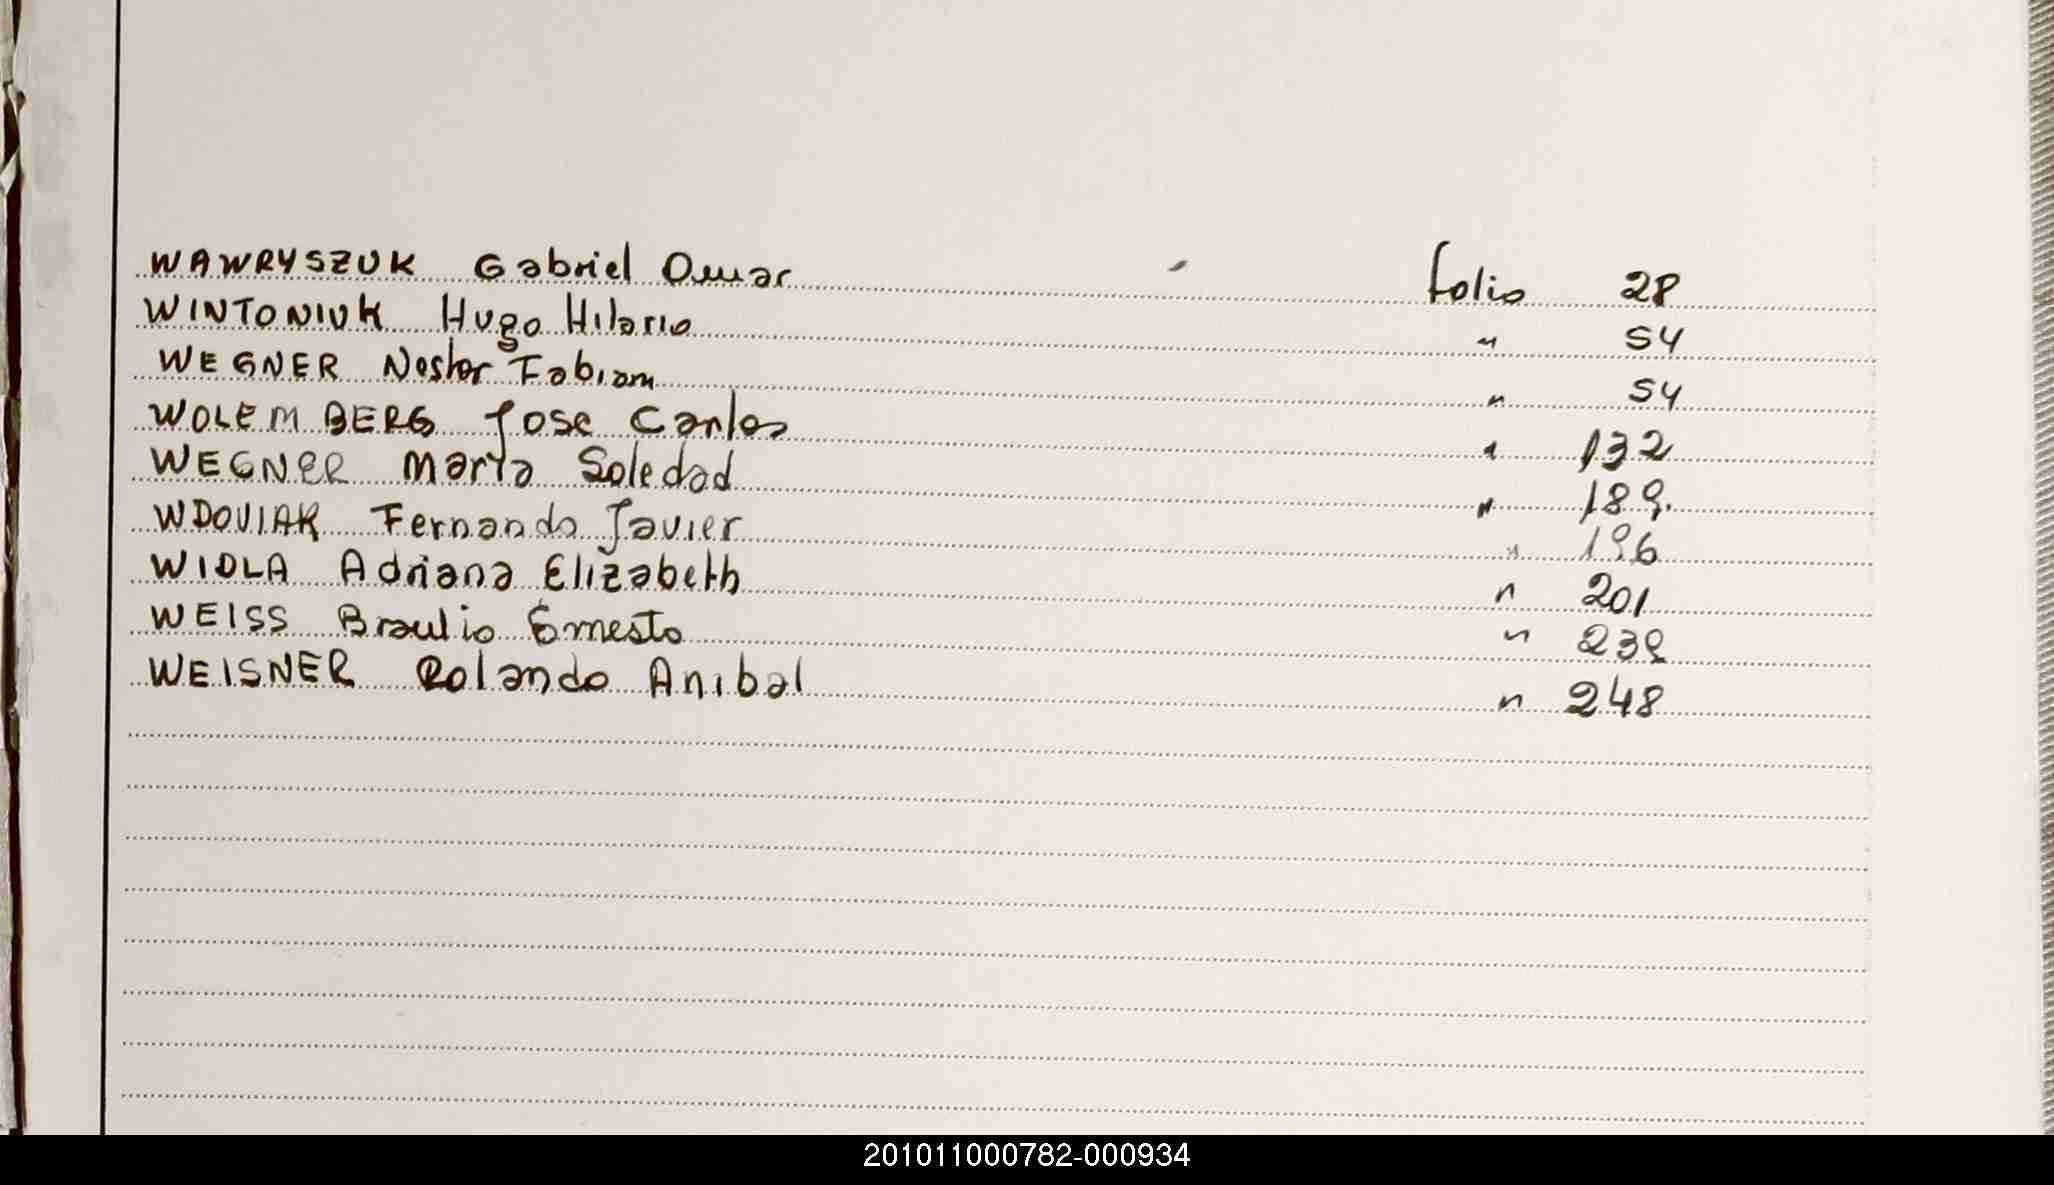 WAWRYSZUK Gabriel Omar folio 28
WINTONIUK Hugo Hilario " 54
WEGNER Nestor Fabian " 54
WOLEMBERG Jose Carlos " 132
WEGNER Marta Soledad " 189.
WDOVIAK Fernando Javier " 196
WIDLA Adriana Elizabeth " 201
WEISS Braulio Ernesto "
WEISNER Rolando Anibal " 248
201011000782-000934